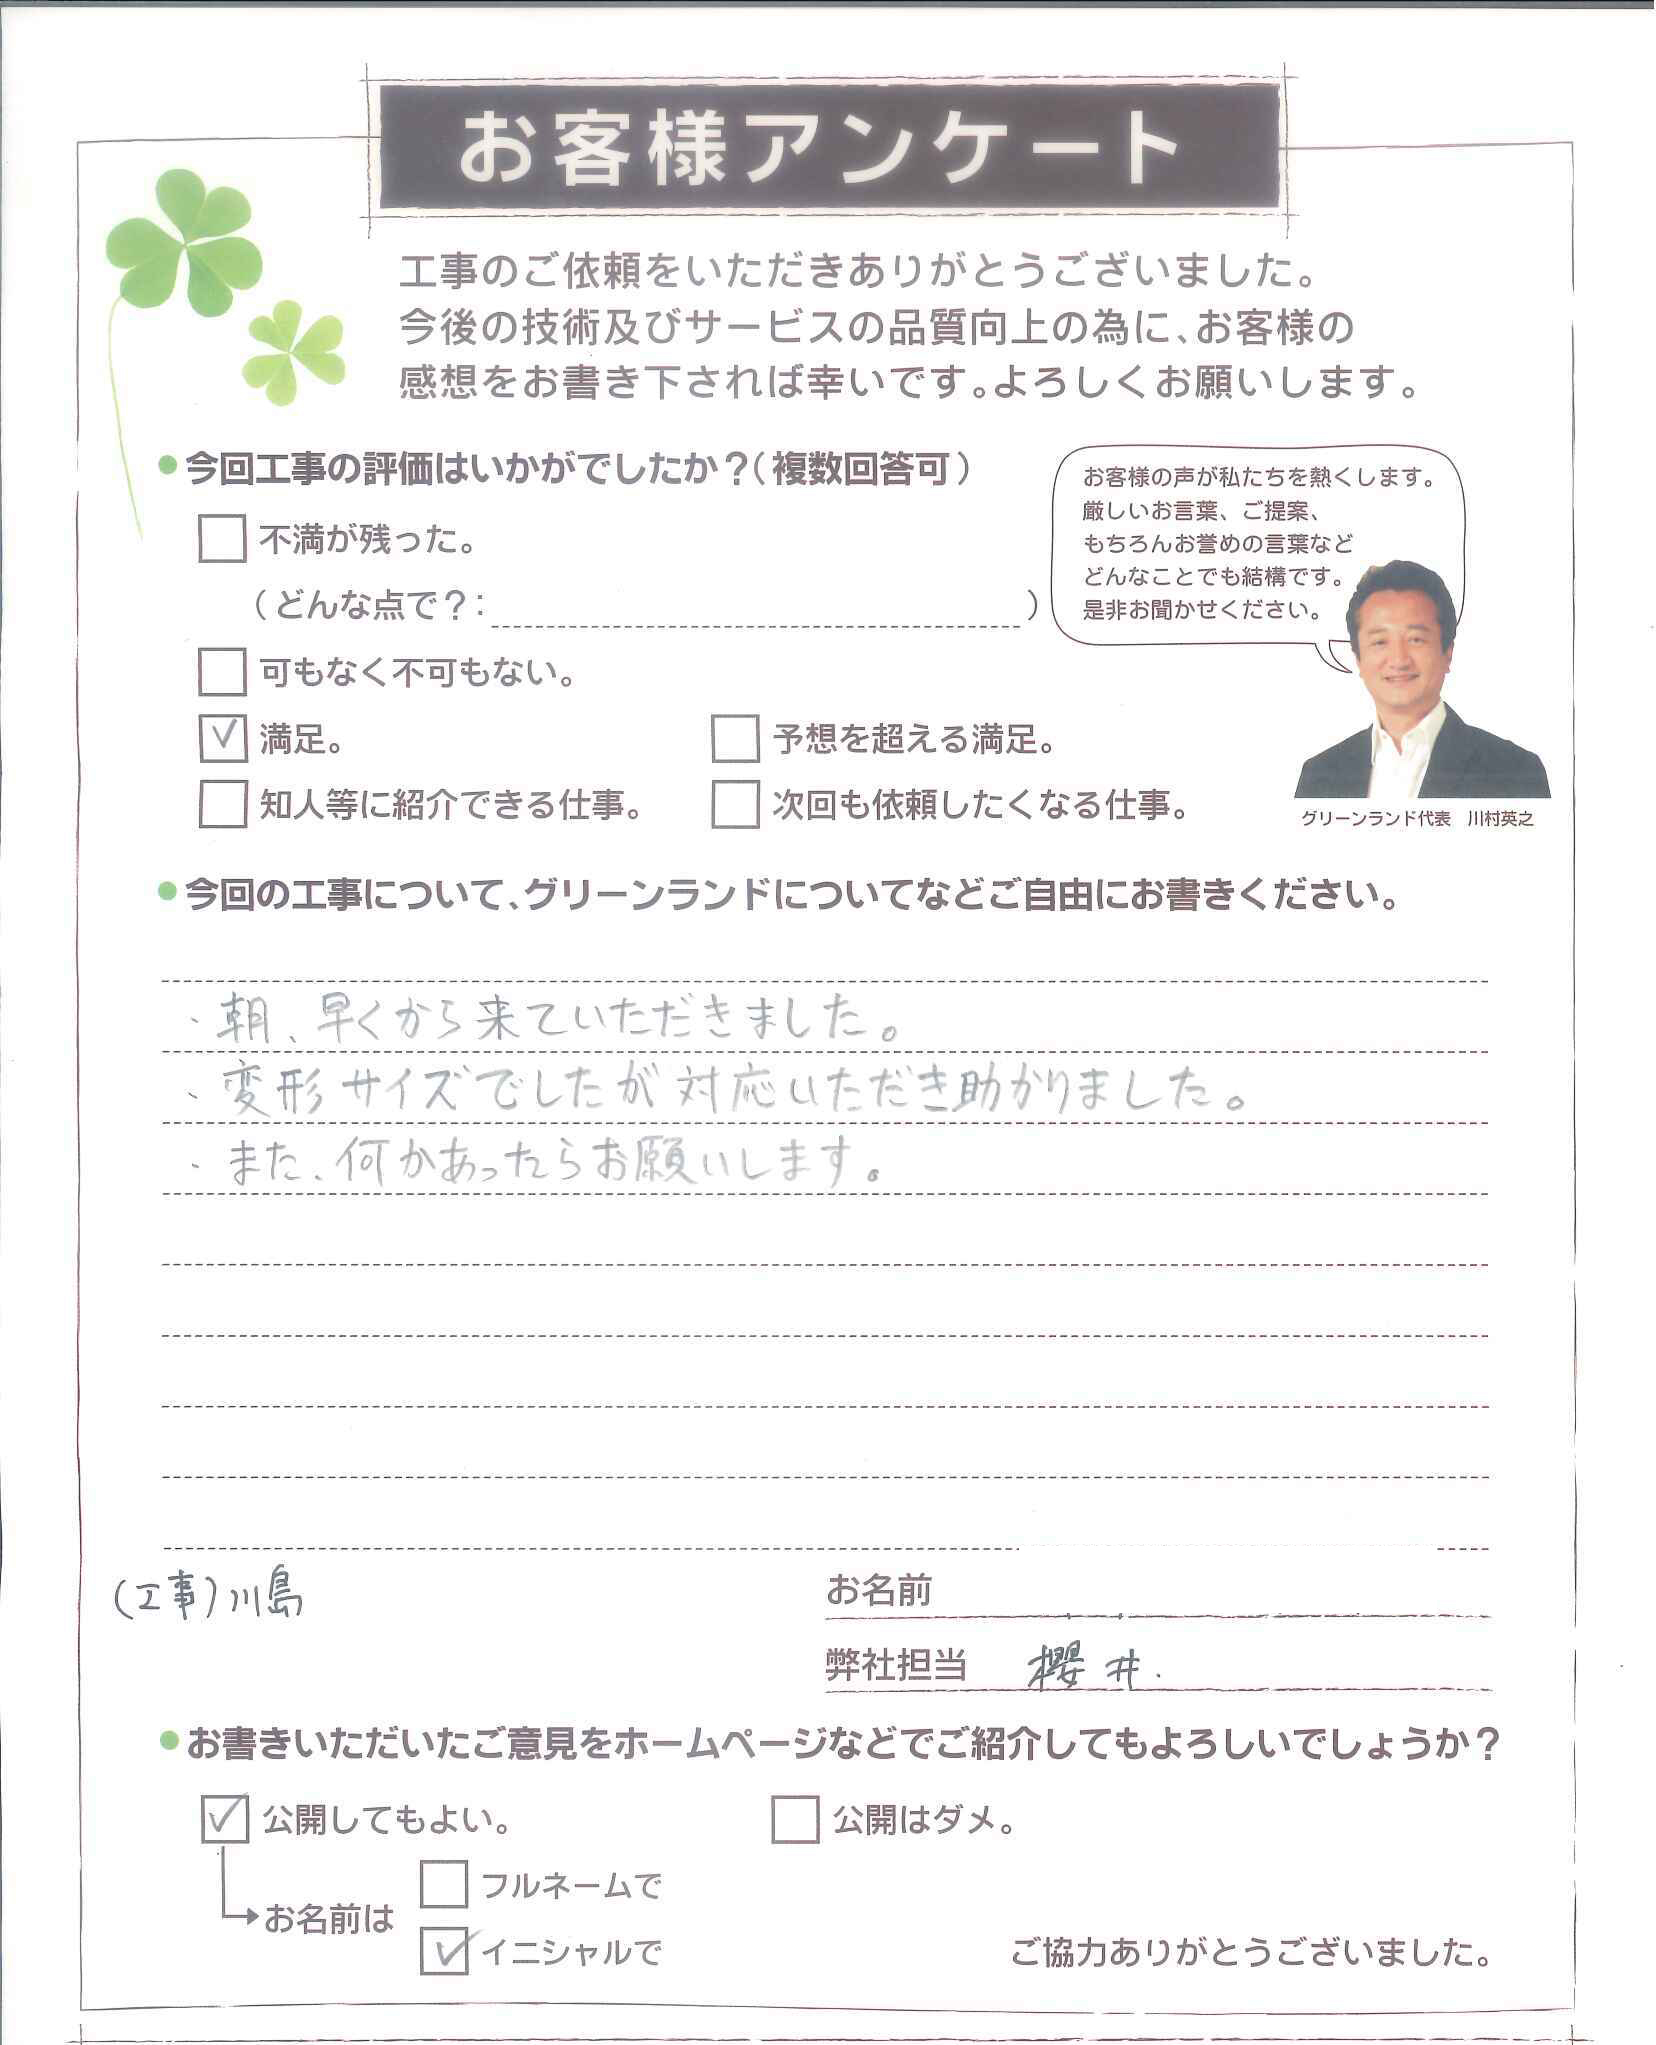 お客様アンケート
工事のご依頼をいただきありがとうございました。
今後の技術及びサービスの品質向上の為に、お客様の
感想をお書き下されば幸いです。よろしくお願いします。
今回工事の評価はいかがでしたか？（複数回答可）
不満が残った。
（どんな点で？： ）
可もなく不可もない。
満足。 予想を超える満足。
知人等に紹介できる仕事。 次回も依頼したくなる仕事。
お客様の声が私たちを熱くします。
厳しいお言葉、ご提案、
もちろんお誉めの言葉など
どんなことでも結構です。
是非お聞かせください。
グリーンランド代表 川村英之
今回の工事について、グリーンランドについてなどご自由にお書きください。
・朝、早くから来ていただきました。
・変形サイズでしたが対応いただき助かりました。
・また、何かあったらお願いします。
（工事）川島
お名前
弊社担当 櫻井.
お書きいただいたご意見をホームページなどでご紹介してもよろしいでしょうか？
公開してもよい。 公開はダメ。
お名前は
フルネームで
イニシャルで
ご協力ありがとうございました。